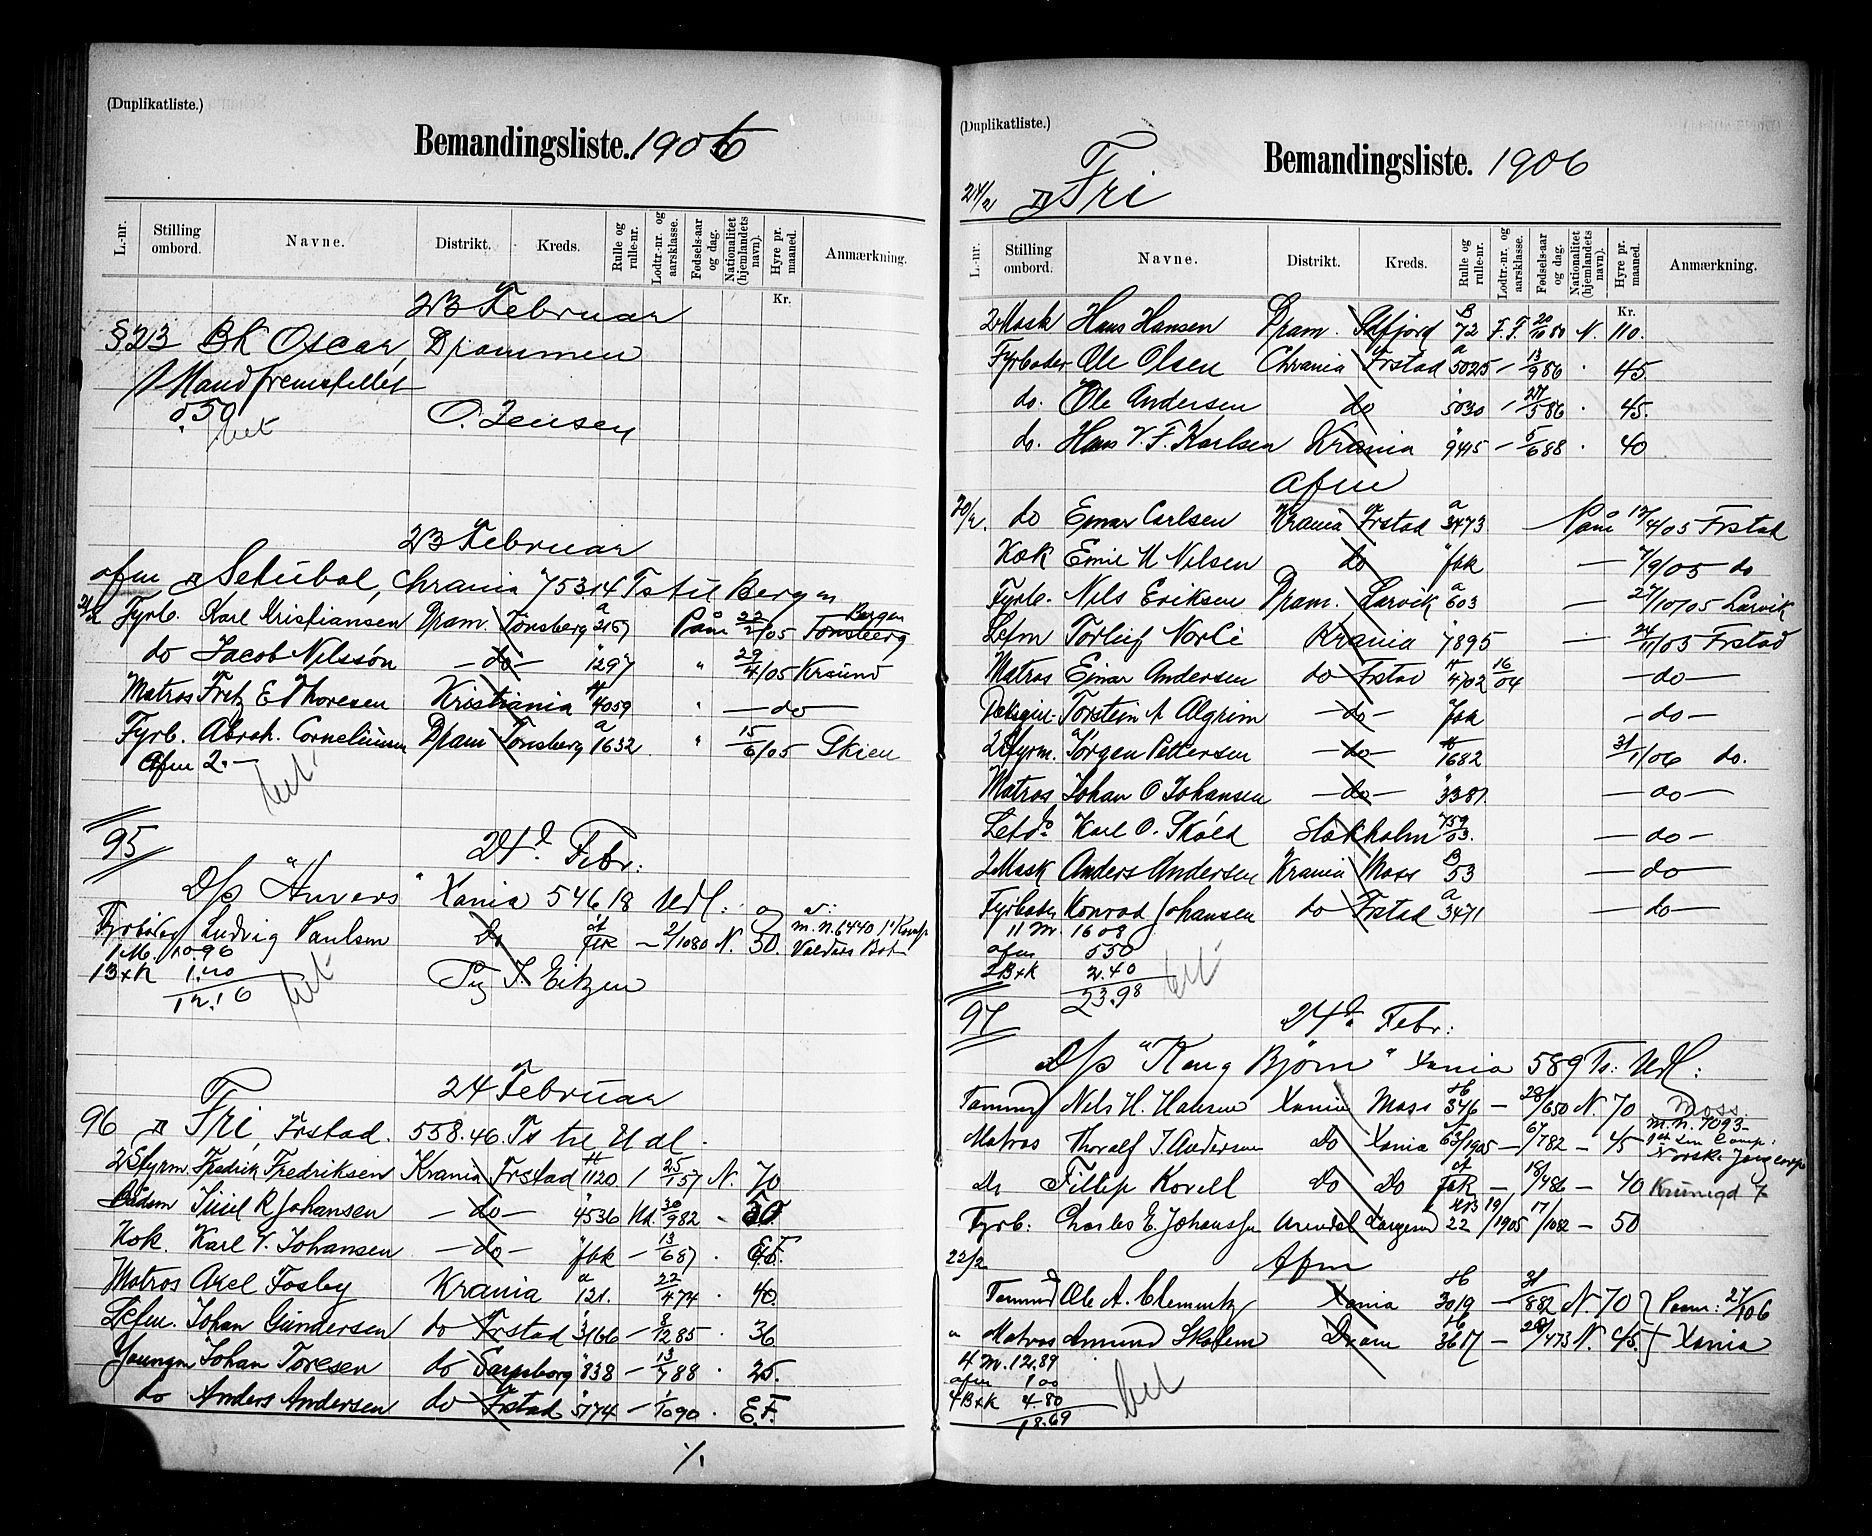 (Duplikatliste.)
Bemandingsliste. 1906
L.-nr. Stilling ombord. Navne. Distrikt. Kreds. Rulle og rulle-nr. Lodtr.-nr. og aarsklasse. Fødsels-aar og dag. Nationalitet (hjemlandets navn). Hyre pr. maaned. Anmærkning.
Kr.
23 Februar
§ 23 BK Oscar, Drammen
1 Mand fremstillet
0.50 O. Jensen
bet
23 Februar
afm Setubal, Chrania 753.14 Ts til Bergen
21/2 Fyrb. Karl Kristiansen Dram. Tønsberg a 2167 Paam 22/2/05 Bergen Tønsberg
do Jacob Nilssøn — do — " 1297 " 29/4/05 Krsund
Matros Fritz E Thoresen Kristiania 4059 " — do —
Fyrb. Abrah. Corneliussen Dram Tønsberg a 1632 " 15/6/05 Skien
Afm 2.—
bet
95 24d Febr:
D/s "Anvers" Xania 546 18 Udl:
Fyrbøder Ludvig Paulsen Do fbk — 2/1080 N. 50. m. n. 6440 1' Komp Valders Bat
1 M. 10.96
1 B+K 1.20
12.16
bet
J. Eitzen
24 Februar
96 Fri, Frstad. 558.46. Ts til Udl.
2 Styrm. Fredrik Fredriksen Krania Frstad 1120 / 25/1 57 N. 70
Bådsm Emil R Johansen — do — " 4536 Ud. 30/9 82 " 50
Kok. Karl V. Johansen — do — " fbk — 13/6 87 E.F.
Matros Axel Fosby Krania a 121. 22/4 74 . 40
Letm. Johan Gundersen do Frstad " 3166 — 8/12 85 . 36
Youngm Johan Toresen do Sarpsborg " 838 — 13/7 88 . 25.
do Anders Andersen do Frstad " 5174 — 1/10 90 . E.F.
%
(Duplikatliste.)
Bemandingsliste. 1906
24/2 Fri
L.-nr. Stilling ombord. Navne. Distrikt. Kreds. Rulle og rulle-nr. Lodtr.-nr. og aarsklasse. Fødsels-aar og dag. Nationalitet (hjemlandets navn). Hyre pr. maaned. Anmærkning.
Kr.
2 Mask Hans Hansen Dram. Sdfjord B 72 F.F. 20/10 80 N. 110.
Fyrbøder Ole Olsen Chrania Frstad a 5025 — 13/9 86 . 45.
do. Ole Andersen do " 5030 — 27/5 86 . 45.
do. Hans V. F. Karlsen Krania " 9415 — 5/6 88 . 40
Afm
20/2. do Ejnar Carlsen Krania Frstad a 3473 Paam 12/4/05 Frstad
Kok Emil M Nilsen do " fbk — 7/9/05 do
Fyrb. Nils Eriksen Dram. Larvik a 603 — 27/10/05 Larvik
Letm Torleif Norli Krania " 7895 — 24/11/05 Frstad
Matros Ejnar Andersen do Frstad 4702 16/04 — do —
Torstein A Algrim — do — fbk — do —
2 Styrm. Jörgen Pettersen — do — 1682 31/1/06 do.
Matros Johan O Johansen — do — " 3381. — do —
Letm do Karl O. Sköld Stokholm 759/03. — do —
2 Mask Anders Andersen Krania Moss B 53 — do —
Fyrbøder Konrad Johansen do Frstad a 3471 — do —
11 M. 16 08
afm 5 50
2 B+K 2.40
23.98
bet
97 24d Febr:
D/s "Kong Bjørn" Xania 589 Ts: Udl:
Tømmerm Nils H. Hansen Xania Moss 346 — 28/6 50 N 70 Moss m. n. 7093
Matros Thoralf J. Andersen Do Xania 63/1905 — 67/782 — 45 1st Lin Comp: Norske Jægercorps
Do Fillip Korell Do Do fbk — 18/4 86 — 40
Fyrb: Charles E. Johanssen Arendal 22 19/1905 17/1082 — 50
22/2 Afm
Tømmerm Ole A. Clemmetz Xania 3019 — 31/8 82 N. 70 } Paam: 27/1 06
" Matros Amund Skolem Dram 3617 — 4/73 N. 45 } Xania
4 M. 12.89
afm 1 00
4 B+K 4.80
18.69
bet